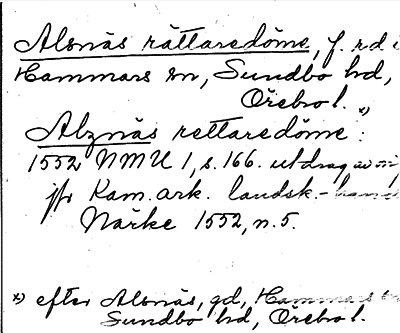 Alsnäs rättaredöme, f. rd i
Hammars sn, Sundbo hd,
Örebro l. x)
Alznäs rettaredöme :
1552 NMU 1, s. 166. utdrag av
jfr Kam. ark. landsk.-
Närke 1552, n. 5.
x) efter Alsnäs, gd, Hammars sn
Sundbo hd, Örebro l.